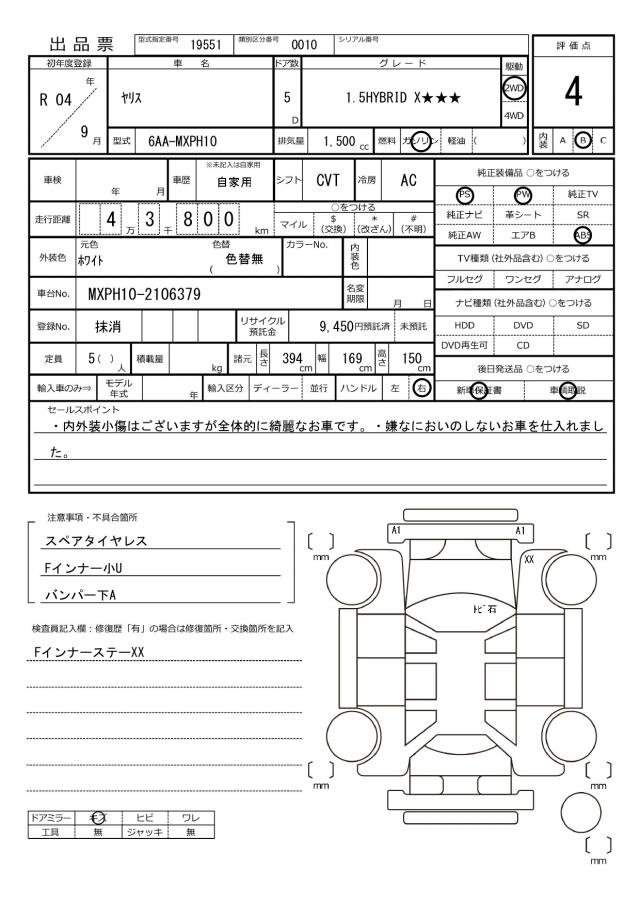 出品票 型式指定番号 19551 類別区分番号 0010 シリアル番号
評価点
4
初年度登録 車名 ドア数 グレード 駆動
R 04 年 9 月 ヤリス 5 D 1.5HYBRID X★★★ 2WD 4WD
型式 6AA-MXPH10 排気量 1,500 cc 燃料 ガソリン 軽油 ( ) 内装 A B C
車検 年 月 車歴 ※未記入は自家用 自家用 シフト CVT 冷房 AC
走行距離 4 万 3 千 8 0 0 km ○をつける
マイル $ (交換) * (改ざん) # (不明)
外装色 元色 ホワイト 色替 ( 色替無 ) カラーNo. 内装色
車台No. MXPH10-2106379 名変期限 月 日
登録No. 抹消 リサイクル預託金 9,450円預託済 未預託
定員 5 ( ) 人 積載量 kg 諸元 長さ 394 cm 幅 169 cm 高さ 150 cm
輸入車のみ⇒ モデル年式 年 輸入区分 ディーラー 並行 ハンドル 左 右
純正装備品 ○をつける
PS PW 純正TV
純正ナビ 革シート SR
純正AW エアB ABS
TV種類(社外品含む)○をつける
フルセグ ワンセグ アナログ
ナビ種類(社外品含む)○をつける
HDD DVD SD
DVD再生可 CD
後日発送品 ○をつける
新車保証書 車輌取説
セールスポイント
・内外装小傷はございますが全体的に綺麗なお車です。・嫌なにおいのしないお車を仕入れまし
た。
注意事項・不具合箇所
スペアタイヤレス
Fインナー小U
バンパー下A
検査員記入欄：修復歴「有」の場合は修復箇所・交換箇所を記入
FインナーステーXX
ドアミラー キズ ヒビ ワレ
工具 無 ジャッキ 無
A1 A1
[ ] mm [ ] mm
XX
ﾄﾋﾞ石
[ ] mm [ ] mm
[ ] mm